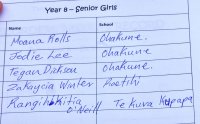 Year 8 – Senior Girls
Name School
Moana Rolls Ohakune.
Jodie Lee Ohakune
Tegan Dickson Ohakune.
Zakaycia Winter Raetihi
Kangihikitia
O'Neill Te Kura Kaupapa